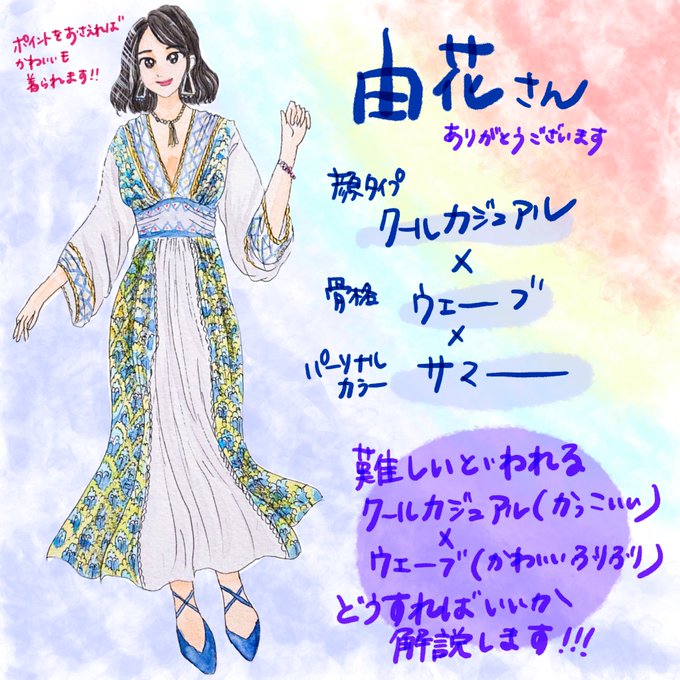 ポイントをおさえれば
かわいいも
着られます!!
由花さん
ありがとうございます
顔タイプ
クールカジュアル
×
骨格 ウェーブ
×
パーソナル
カラー サマー
難しいといわれる
クールカジュアル(かっこいい)
×
ウェーブ(かわいいふりふり)
どうすればいいか
解説します!!!